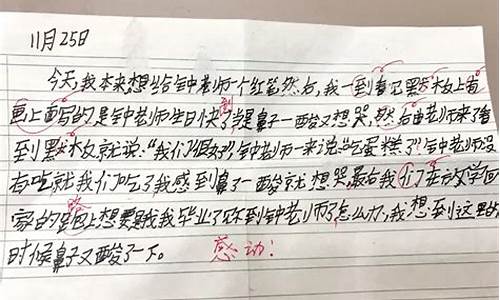 11月25日
今天,我本来想给钟老师一个红笔然后,我一到看见黑板上有
画上面写的是钟老师生日快 我是鼻子一酸又想哭,然后曲老师来了看
到黑板就说:“我们很好”,钟老师一来说“吃蛋糕了”钟老师没
有吃就我们吃了我感到鼻子一酸就想哭,最后我们在放学回
家的路上想要是我毕业了见不到钟老师了怎么办,我想到这里的
时候鼻子又酸了一下。 感动!